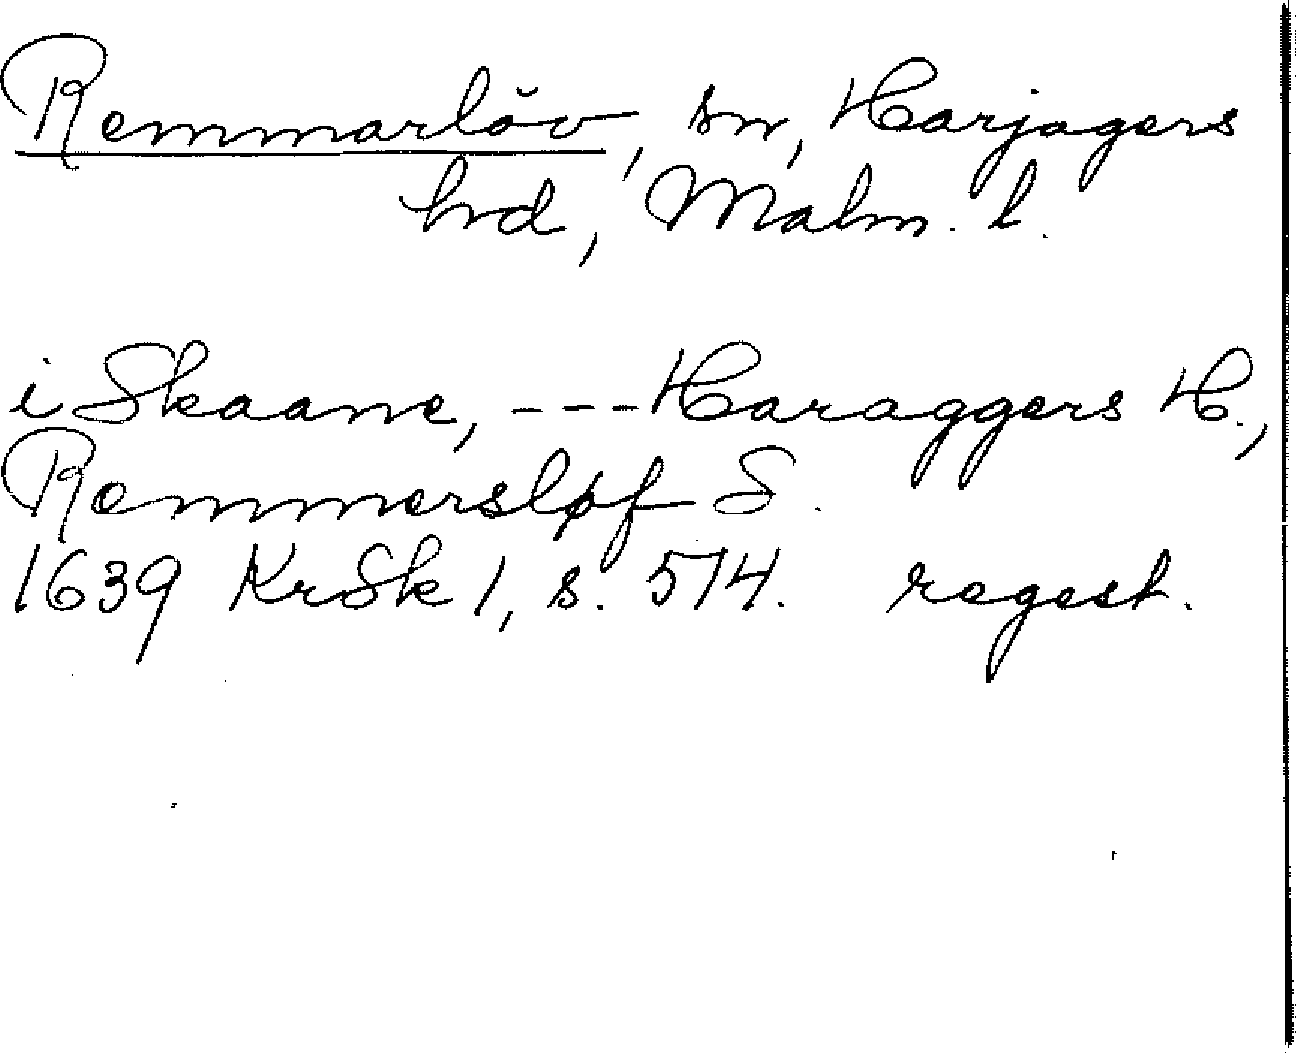 Remmarlöv, sn, Harjagers
hd, Malm. l.
i Skaane, --- Haraggers H.,
Remmersløf S.
1639 KrSk 1, s. 514. regest.